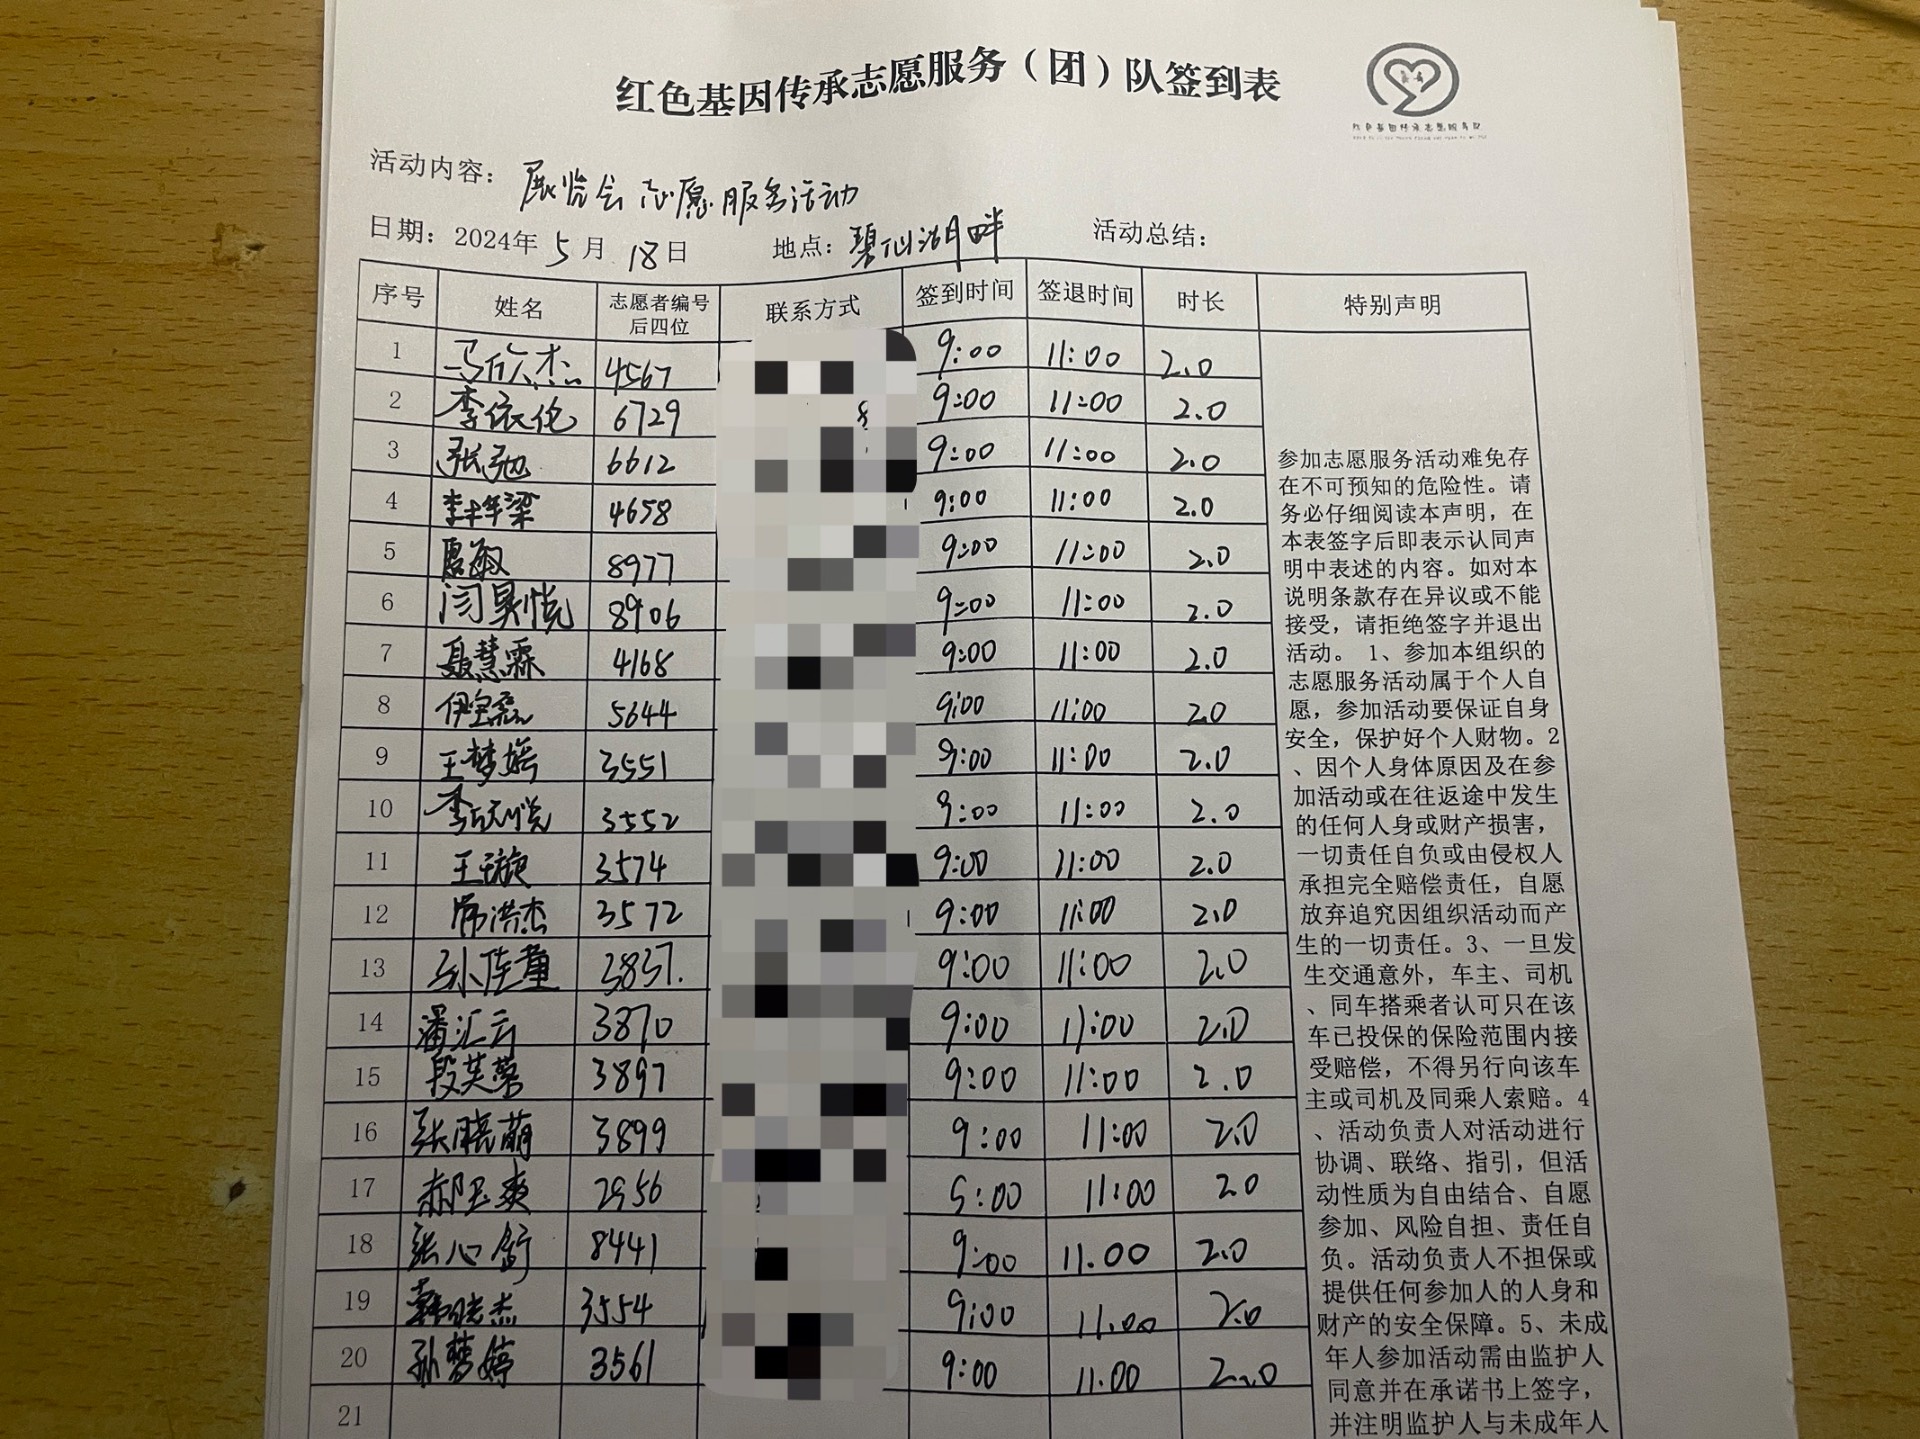 红色基因传承志愿服务（团）队签到表
红色基因传承志愿服务队
活动内容： 展览会志愿服务活动
日期：2024年 5 月 18 日 地点：碧仙湖畔 活动总结：
序号 姓名 志愿者编号后四位 联系方式 签到时间 签退时间 时长 特别声明
1 4567 9:00 11:00 2.0
2 李依伦 6729 9:00 11:00 2.0
3 张弛 6612 9:00 11:00 2.0
4 4658 9:00 11:00 2.0
5 8977 9:00 11:00 2.0
6 闫昊悦 8906 9:00 11:00 2.0
7 聂慧霖 4168 9:00 11:00 2.0
8 5644 9:00 11:00 2.0
9 王梦瑶 3551 9:00 11:00 2.0
10 3552 9:00 11:00 2.0
11 王璇 3574 9:00 11:00 2.0
12 3572 9:00 11:00 2.0
13 孙佳童 3837. 9:00 11:00 2.0
14 潘汇云 3870 9:00 11:00 2.0
15 段芙蓉 3897 9:00 11:00 2.0
16 张晓萌 3899 9:00 11:00 2.0
17 郝昱爽 2956 9:00 11:00 2.0
18 张心舒 8441 9:00 11.00 2.0
19 韩晓杰 3554 9:00 11.00 2.0
20 孙梦婷 3561 9:00 11.00 2.0
21
参加志愿服务活动难免存
在不可预知的危险性。请
务必仔细阅读本声明，在
本表签字后即表示认同声
明中表述的内容。如对本
说明条款存在异议或不能
接受，请拒绝签字并退出
活动。 1、参加本组织的
志愿服务活动属于个人自
愿，参加活动要保证自身
安全，保护好个人财物。2
、因个人身体原因及在参
加活动或在往返途中发生
的任何人身或财产损害，
一切责任自负或由侵权人
承担完全赔偿责任，自愿
放弃追究因组织活动而产
生的一切责任。3、一旦发
生交通意外，车主、司机
、同车搭乘者认可只在该
车已投保的保险范围内接
受赔偿，不得另行向该车
主或司机及同乘人索赔。4
、活动负责人对活动进行
协调、联络、指引，但活
动性质为自由结合、自愿
参加、风险自担、责任自
负。活动负责人不担保或
提供任何参加人的人身和
财产的安全保障。5、未成
年人参加活动需由监护人
同意并在承诺书上签字，
并注明监护人与未成年人